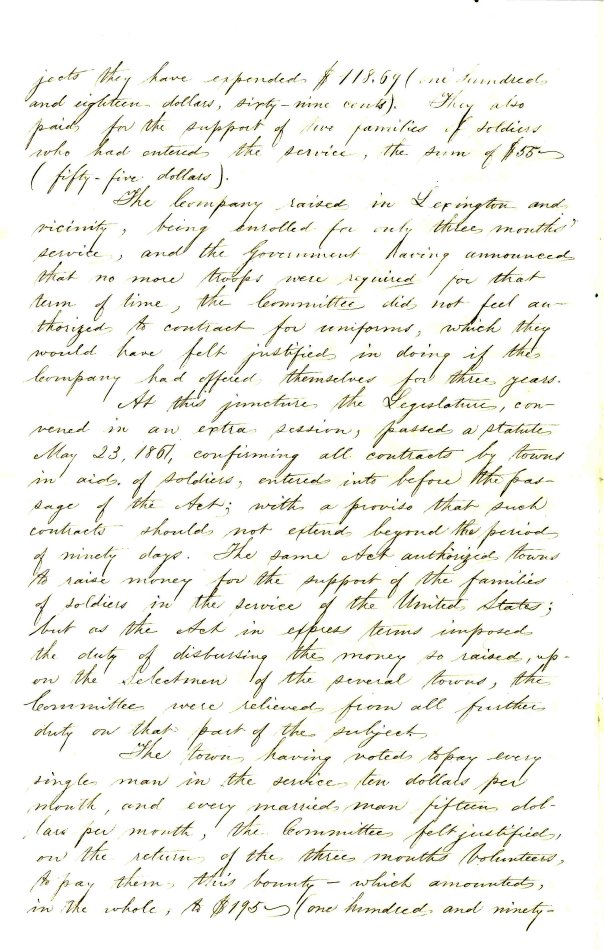 jects they have expended $118.69 (one hundred
and eighteen dollars, sixty-nine cents). They also
paid for the support of two families of soldiers
who had entered the service, the sum of $55—
(fifty-five dollars).
The Company raised in Lexington and
vicinity, being enrolled for only three months'
service, and the Government having announced
that no more troops were required for that
term of time, the Committee did not feel au-
thorized to contract for uniforms, which they
would have felt justified in doing if the
Company had offered themselves for three years.
At this juncture the Legislature, con-
vened in an extra session, passed a statute
May 23, 1861, confirming all contracts by towns
in aid of soldiers, entered into before the pas-
sage of the Act; with a proviso that such
contracts should not extend beyond the period
of ninety days. The same Act authorized towns
to raise money for the support of the families
of soldiers in the service of the United States;
but as the Act in express terms imposed
the duty of disbursing the money so raised, up-
on the Selectmen of the several towns, the
Committee were relieved from all further
duty on that part of the subject.
The town having voted to pay every
single man in the service ten dollars per
month, and every married man fifteen dol-
lars per month, the Committee felt justified,
on the return of the three months volunteers,
to pay them this bounty - which amounted,
in the whole, to $195— (one hundred and ninety-